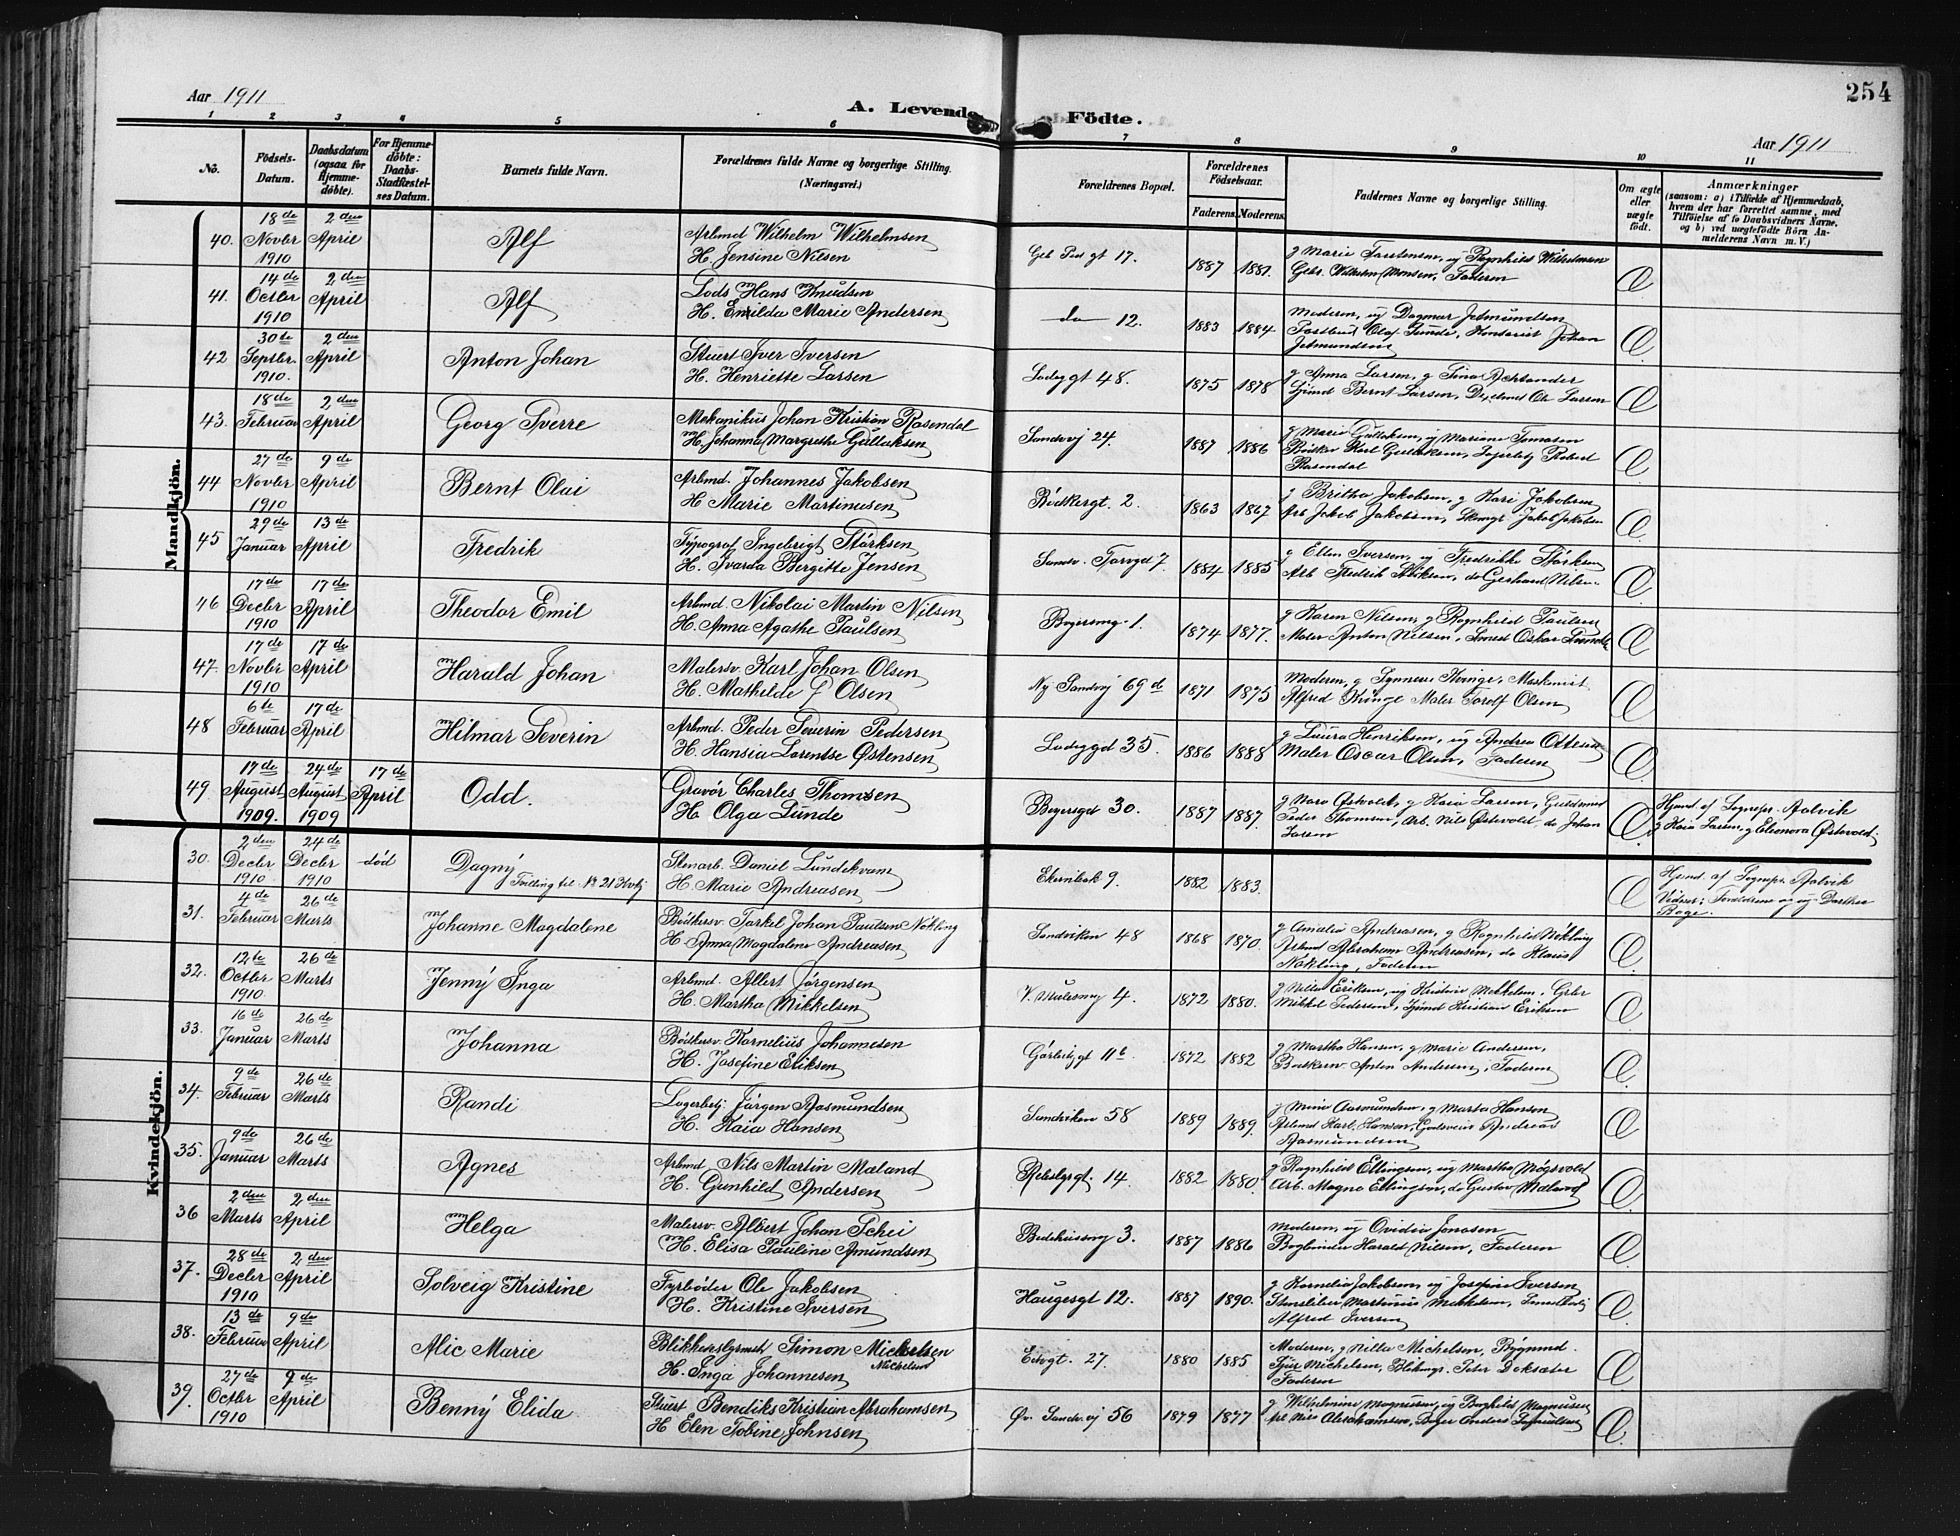 254
Aar 1911
A. Levende Födte.
Aar 1911
1 2 3 4 5 6 7 8 9 10 11
No.
Födsels-Datum.
Daabsdatum (ogsaa for Hjemmedöbte).
For Hjemmedöbte: Daabs-Stadfæstelses Datum.
Barnets fulde Navn.
Forældrenes fulde Navne og borgerlige Stilling.
(Næringsvei.)
Forældrenes Bopæl.
Forældrenes Födselsaar.
Faderens. Moderens.
Faddernes Navne og borgerlige Stilling.
Om ægte eller uægte födt.
Anmærkninger
(saasom: a) i Tilfælde af Hjemmedaab, hvem der har forrettet samme, med Tilföielse af to Daabsvidners Navne, og b) ved uægtefödte Börn Anmelderens Navn m. V.)
Mandkjön.
40. 18de Novbr 1910 2den April Alf
Arbmd Wilhelm Wilhelmsen
H. Jensine Nilsen
17. 1887 1881.
Faderen
41. 14de Octbr 1910 2den April Alf
Lods Hans Knudsen
H. Emilda Marie Andersen
do 12. 1883 1884
Moderen, ug Dagmar Jetmundsen
Johan
Jetmundsen
42 30te Septbr. 1910. 2den April Anton Johan
Stuert Iver Iversen
H. Henriette Larsen
Ladeggt 48. 1875 1878
g Anna Larsen, g
Bernt Larsen, Ole Larsen
43. 18de Februar 2den April Georg Sverre
Mekanikus Johan Kristian Rosendal
H. Johanna Margrethe Gullaksen
Sandvj 24. 1887 1886
g Marie Gullaksen, ug Mariane Tomasen
Bödker Karl Gullaksen, Robert
Rosendal
44 27de Novbr 1910 9de April Bernt Olai
Arbmd. Johannes Jakobsen
H Marie Martinusen
Bödkergt. 2. 1863 1867
g Britha Jakobsen, g Kari Jakobsen
Arb Jakob Jakobsen, Jakob Jakobsen
45 29de Januar 13de April Fredrik
Typograf Ingebrigt Störksen
H. Svarda Bergitte Jensen
Sandv. Torvgd 7. 1884 1885
g Ellen Iversen, ug Fredrikke Störksen
Arb Fredrik Eriksen, do Gerhard Nilsen
46 17de Decbr 1910 17de April Theodor Emil
Arbmd. Nikolai Martin Nilsen
H. Anna Agathe Paulsen
1. 1874 1877.
g Karen Nilsen, g Ragnhild Paulsen
Maler Anton Nilsen, Smed Oskar
47. 17de Novbr 1910 17de April Harald Johan
Malersv. Karl Johan Olsen
H. Mathilde Olsen
Ny Sandvj 69 d 1871 1875
Moderen, g Synneve Kvinge, Maskinist
Alfred Kvinge Maler Torolf Olsen
48 6te Februar 17de April Hilmar Severin
Arbmd. Peder Severin Pedersen
H. Hansia Lorentse Östensen
Ladeggd 35. 1886 1888
g Laura Henriksen, ug Andrea Ottesen
Maler Oscar Olsen, Faderen
49 17de August 1909. 24de August 1909 17de April Odd.
Gravör Charles Thomsen
H. Olga Lunde
Beyersgd 30. 1887 1887.
g Nora Östvold, g Kaia Larsen, Guldsmed
Peder Thomsen, Arb. Nils Östevold, do Johan
Larsen
Hjmd. af Sognepr. Aalvik
g Kaia Larsen, g Elenora Östevold.
Kvindekjön.
30. 2den Decbr 1910 24de Decbr 1910 död Dagny
Tvilling til № 21 Kvkj
Stenarb. Daniel Lundekvam
H. Marie Andreasen
9. 1882 1883.
Hjmd. af Sognepr. Aalvik
Vidner: Forældrene og ug Dorthea
Boge.
31. 4de Februar 26de Marts Johanne Magdalene
Bödkersv. Torkel Johan Paulsen Nökling
H. Anna Magdalene Andreasen
Sandviken 48 1868 1870.
g Amalia Andreasen, g Ragnhild Nökling
Arbmd Abraham Andreasen, do Klaus
Nökling, Faderen
32. 12te Octbr 1910 26de Marts Jenny Inga
Arbmd. Albert Jörgensen
H. Martha Mikkelsen
4. 1872 1880.
g Nilla Eriksen, ug Kristine Mikkelsen,
Mikkel Pedersen, Kristian Eriksen
33. 16de Januar 26de Marts Johanna
Bödkersv Kornelius Johannesen
H. Josefine Eriksen
11b 1872 1882
g Martha Hansen, g Marie Andersen,
Bödkersv. Anton Andersen, Faderen
34. 9de Februar 26de Marts Randi
Lagerbetj. Jörgen Aasmundsen
H. Kaia Hansen
Sandviken 58 1889 1889.
g Mina Aasmundsen, g Marta Hansen
Arbmd Karl Hansen, Andreas
Aasmundsen
35. 9de Januar 26de Marts Agnes
Arbmd Nils Martin Maland
H. Gunhild Andersen
14. 1882 1880.
g Ragnhild Ellingsen, ug Martha Mögsvold
Arb. Magne Ellingsen, do Gustav Maland
36 2den Marts 2den April Helga
Malersv. Albert Johan Schei
H. Elisa Pauline Amundsen
3. 1887 1886
Moderen, ug Ovidia Jonasen
Bogbinder Harald Nilsen, Faderen
37. 28de Decbr 1910 2den April Solveig Kristine
Fyrböder Ole Jakobsen
H. Kristine Iversen
Haugesgt 12. 1887 1890.
g Kornelia Jakobsen, ug Josefine Iversen
Martinius Mikkelsen,
Alfred Iversen
38. 13de Februar 9de April Alic Marie
Blikkenslgsmstr Simon Mickelsen
Michelsen
H. Inga Johannesen
27. 1880 1885
Moderen, g Nilla Michelsen,
Michelsen, Peter Doksæter
Faderen
39. 27de Octbr 1910 9de April Benny Elida
Stuert Bendiks Kristian Abrahamsen
H Elen Tobine Johnsen
Öv. Sandvj 56 1879 1877
g Wilhelmine Magnussen, ug Borghild Magnussen
Arb Nils Abrahamsen, Anders